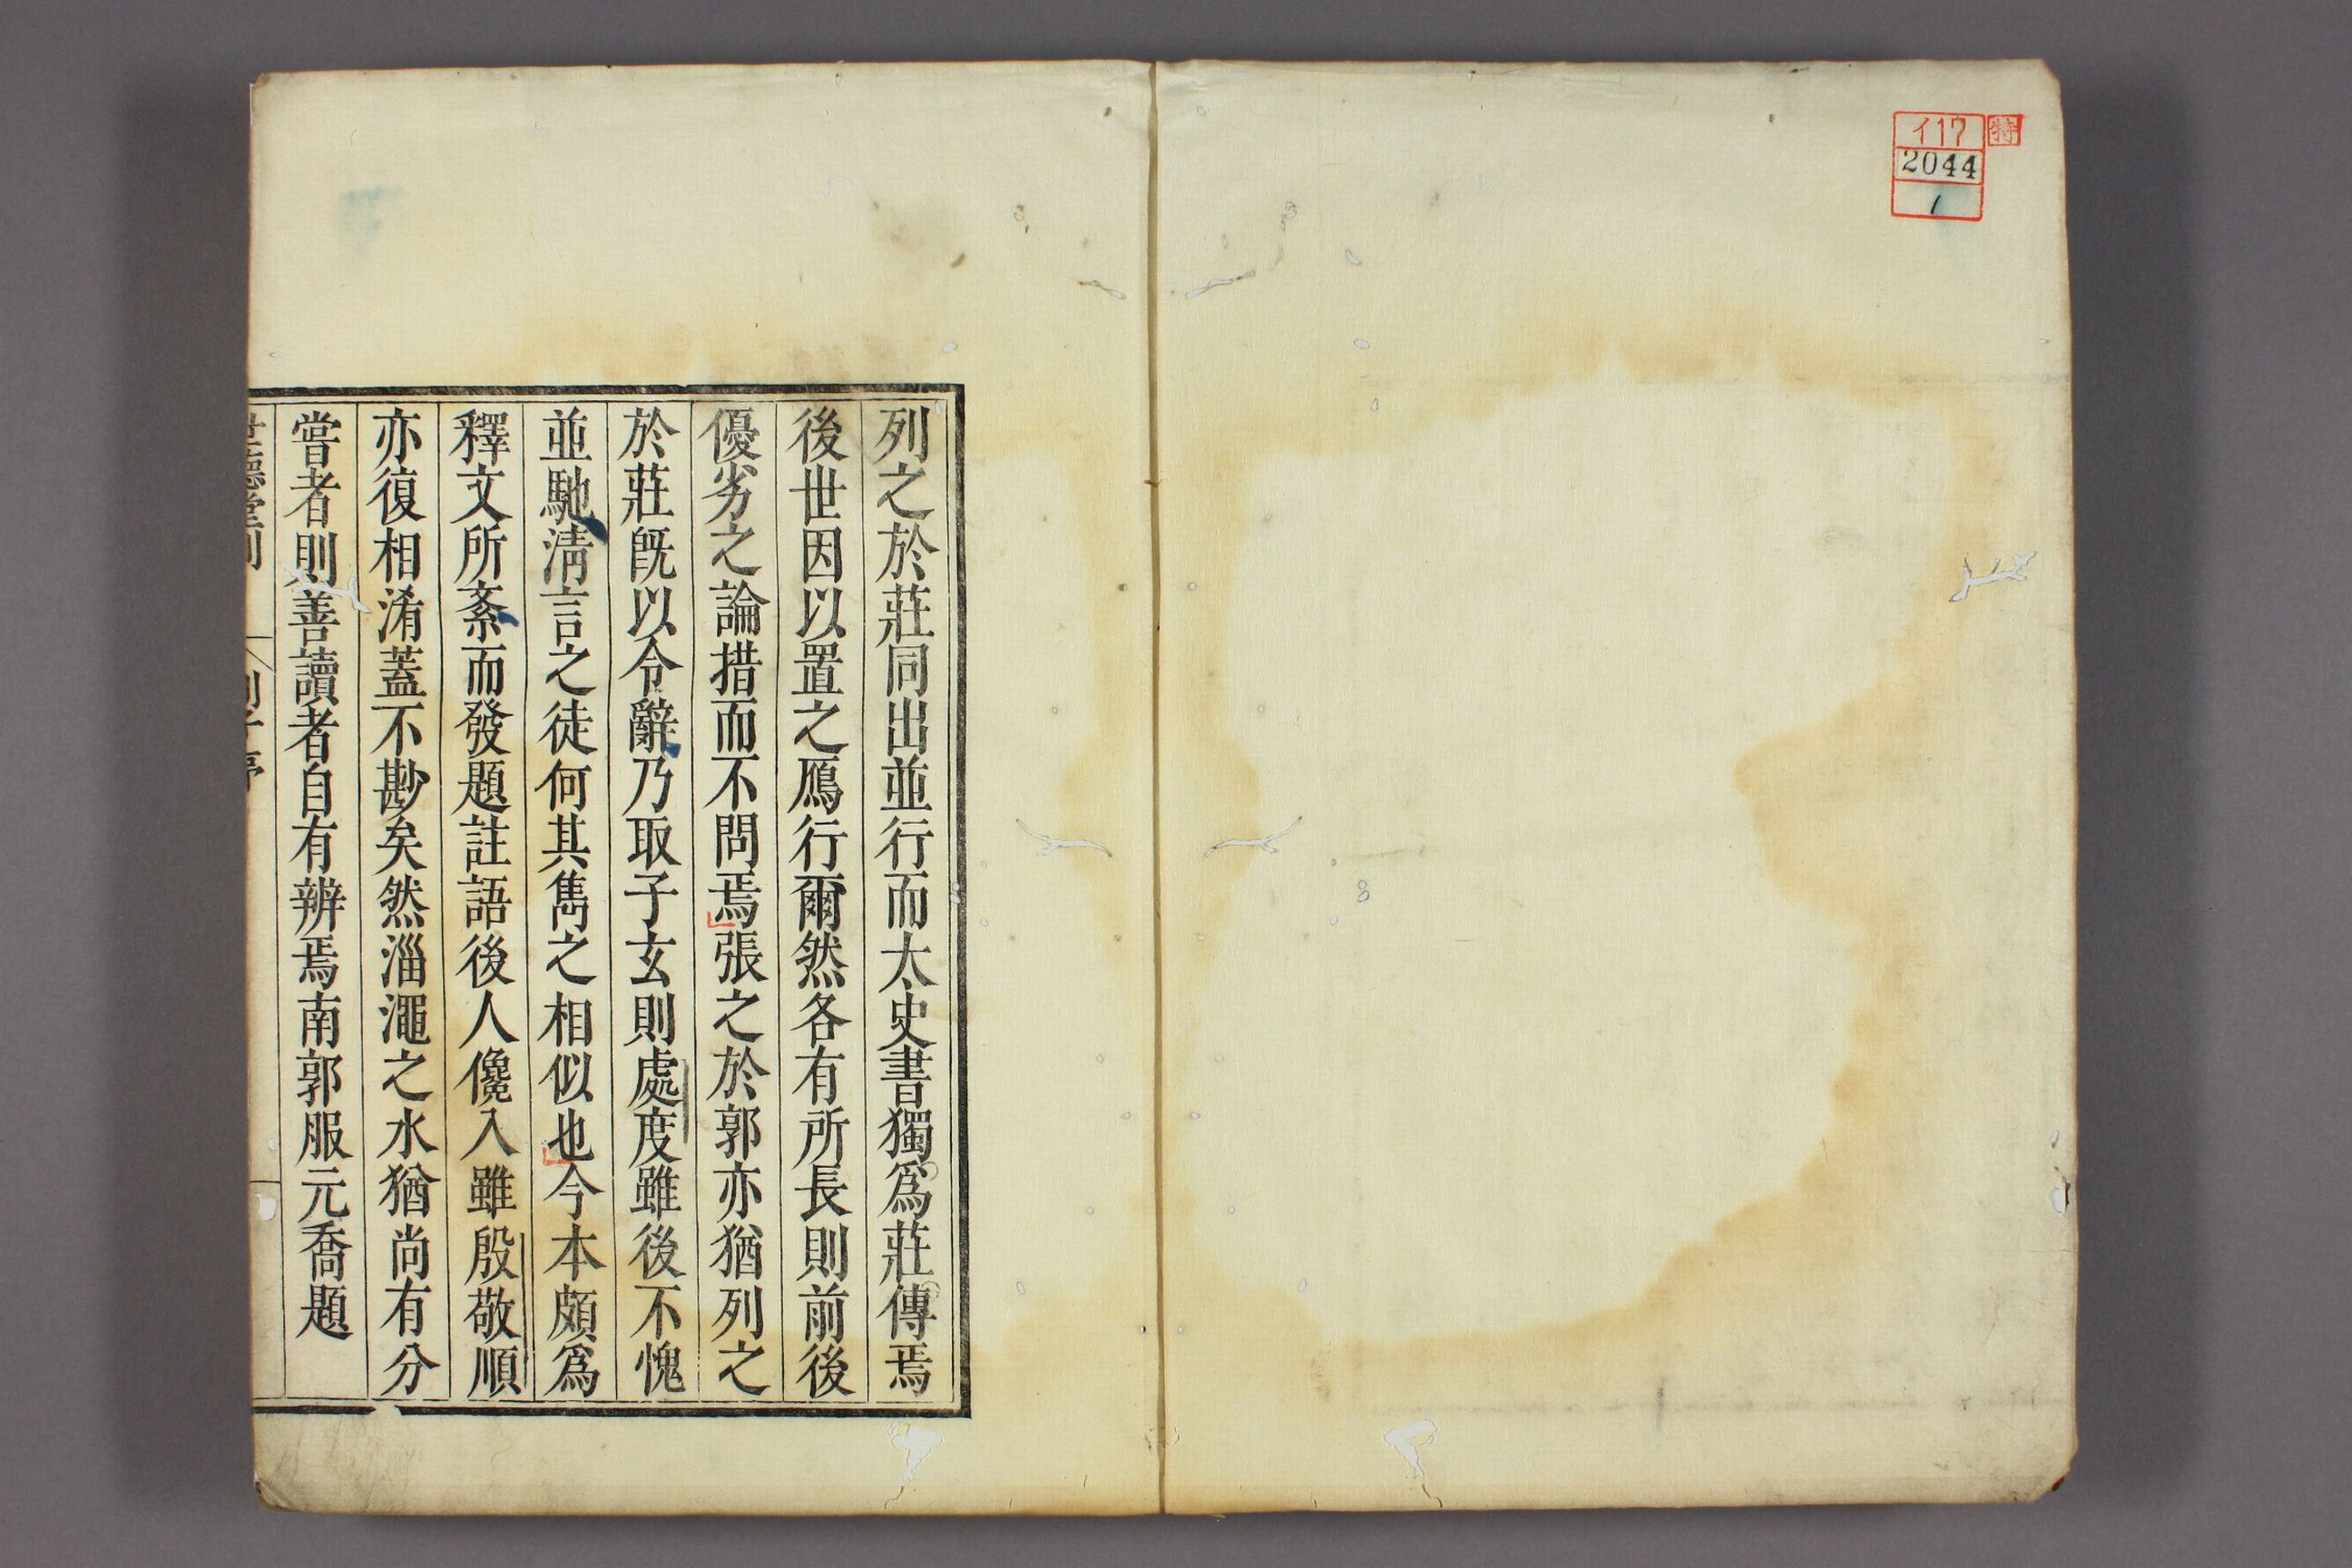 特
イ17
2044
1
列之於莊同出並行而太史書獨爲莊傳焉
後世因以置之鴈行爾然各有所長則前後
優劣之論措而不問焉張之於郭亦猶列之
於莊旣以令辭乃取子玄則處度雖後不愧
並馳淸言之徒何其雋之相似也今本頗爲
釋文所紊而發題註語後人儳入雖殷敬順
亦復相淆蓋不尠矣然淄澠之水猶尚有分
嘗者則善讀者自有辨焉南郭服元喬題